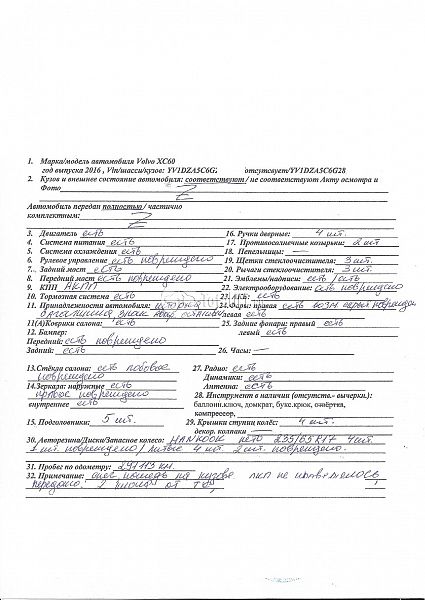 1. Марка/модель автомобиля Volvo XC60
год выпуска 2016 , Vin/шасси/кузов: YV1DZA5C6G2 отсутсвует/YV1DZA5C6G28
2. Кузов и внешнее состояние автомобиля: соответствуют / не соответствуют Акту осмотра и
Фото Z
Автомобиль передан полностью / частично
комплектным: Z
3. Двигатель есть
4. Система питания есть
5. Система охлаждения есть
6. Рулевое управление есть повреждено
7.. Задний мост есть
8. Передний мост есть повреждено
9. КПП АКПП
10. Тормозная система есть
11. Принадлежности автомобиля: шторка
багажника знак авар остановки
11(А)Коврики салона: есть
12. Бампер:
Передний: есть повреждено
Задний: есть
16. Ручки дверные: 4 шт.
17. Противосолнечные козырьки: 2 шт
18. Пепельницы: —
19. Щетки стеклоочистителя: 3 шт.
20. Рычаги стеклоочистителя: 3 шт.
21. Эмблемы/надписи: есть / есть
22. Электрооборудование: есть повреждено
23. АКБ: есть
24. Фары: правая есть возм. скрыт поврежд
левая есть
25. Задние фонари: правый есть
левый есть
26. Часы: —
13.Стёкла салона: есть лобовое
повреждено
14.Зеркала: наружные есть
правое повреждено
внутреннее есть
15. Подголовники: 5 шт.
27. Радио: есть
Динамики: есть
Антенна: есть
28. Инструмент в наличии (отсутств.- вычерки.):
баллонн.ключ, домкрат, букс.крюк, отвёртка,
компрессор,
29. Крышки ступиц колёс: 4 шт.
декор. колпаки —
30. Авторезина/Диски/Запасное колесо: HANKOOK лето 235/65R17 4 шт.
1 шт. повреждено / литые 4 шт. 2 шт. повреждено.
31. Пробег по одометру: 297113 км.
32. Примечание: след на кузове лкп не
передано: 2 от ТС